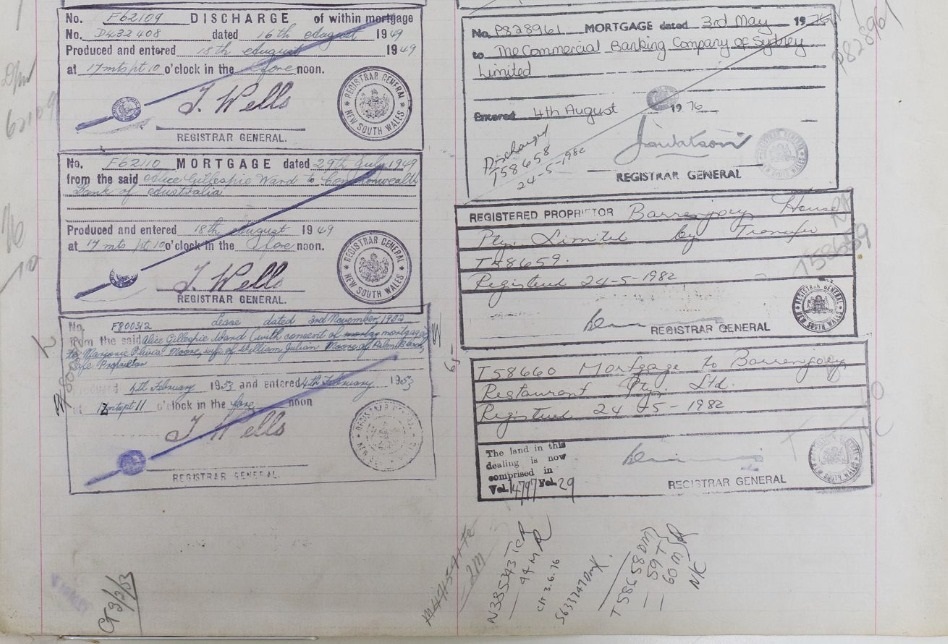 No. F62109 DISCHARGE of within mortgage
No. D432408 dated 16th August 1949
Produced and entered 18th August 1949
at 17 mts pt 10 o'clock in the fore noon.
J. Wells
REGISTRAR GENERAL.
REGISTRAR GENERAL
NEW SOUTH WALES
No. F62110 MORTGAGE dated 29th July 1949
from the said Alice Gillespie Ward to Commonwealth
Bank of Australia
Produced and entered 18th August 1949
at 17 mts pt 10 o'clock in the fore noon.
J. Wells
REGISTRAR GENERAL.
REGISTRAR GENERAL
NEW SOUTH WALES
No. F800312 Lease dated 3rd November 1952
from the said Alice Gillespie Ward (with consent of
to wife of Julian Moore of Palm Beach
Proprietor
4th February 1953 and entered 4th February 1953
at 12 mts pt 11 o'clock in the fore noon
J. Wells
REGISTRAR GENERAL.
No. P828961 MORTGAGE dated 3rd May 19
to The Commercial Banking Company of Sydney
Limited
Entered 4th August 1976
Discharged
T58658
24-5-1982
Watson
REGISTRAR GENERAL
P828961
REGISTERED PROPRIETOR Barrenjoey House
Pty. Limited by Transfer
T58659.
Registered 24-5-1982
REGISTRAR GENERAL
REGISTRAR GENERAL
NEW SOUTH WALES
T58660 Mortgage to Barrenjoey
Restaurant Pty. Ltd.
Registered 24-5-1982
The land in this
dealing is now
comprised in
Vol. 14797 Fol. 29
REGISTRAR GENERAL
N385543
T58658 DM
59 T
60 M